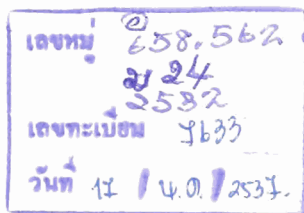 เลขหมู่ 658.562
ม 24
2532
เลขทะเบียน 7633
วันที่ 17 / พ.ค. / 2537.